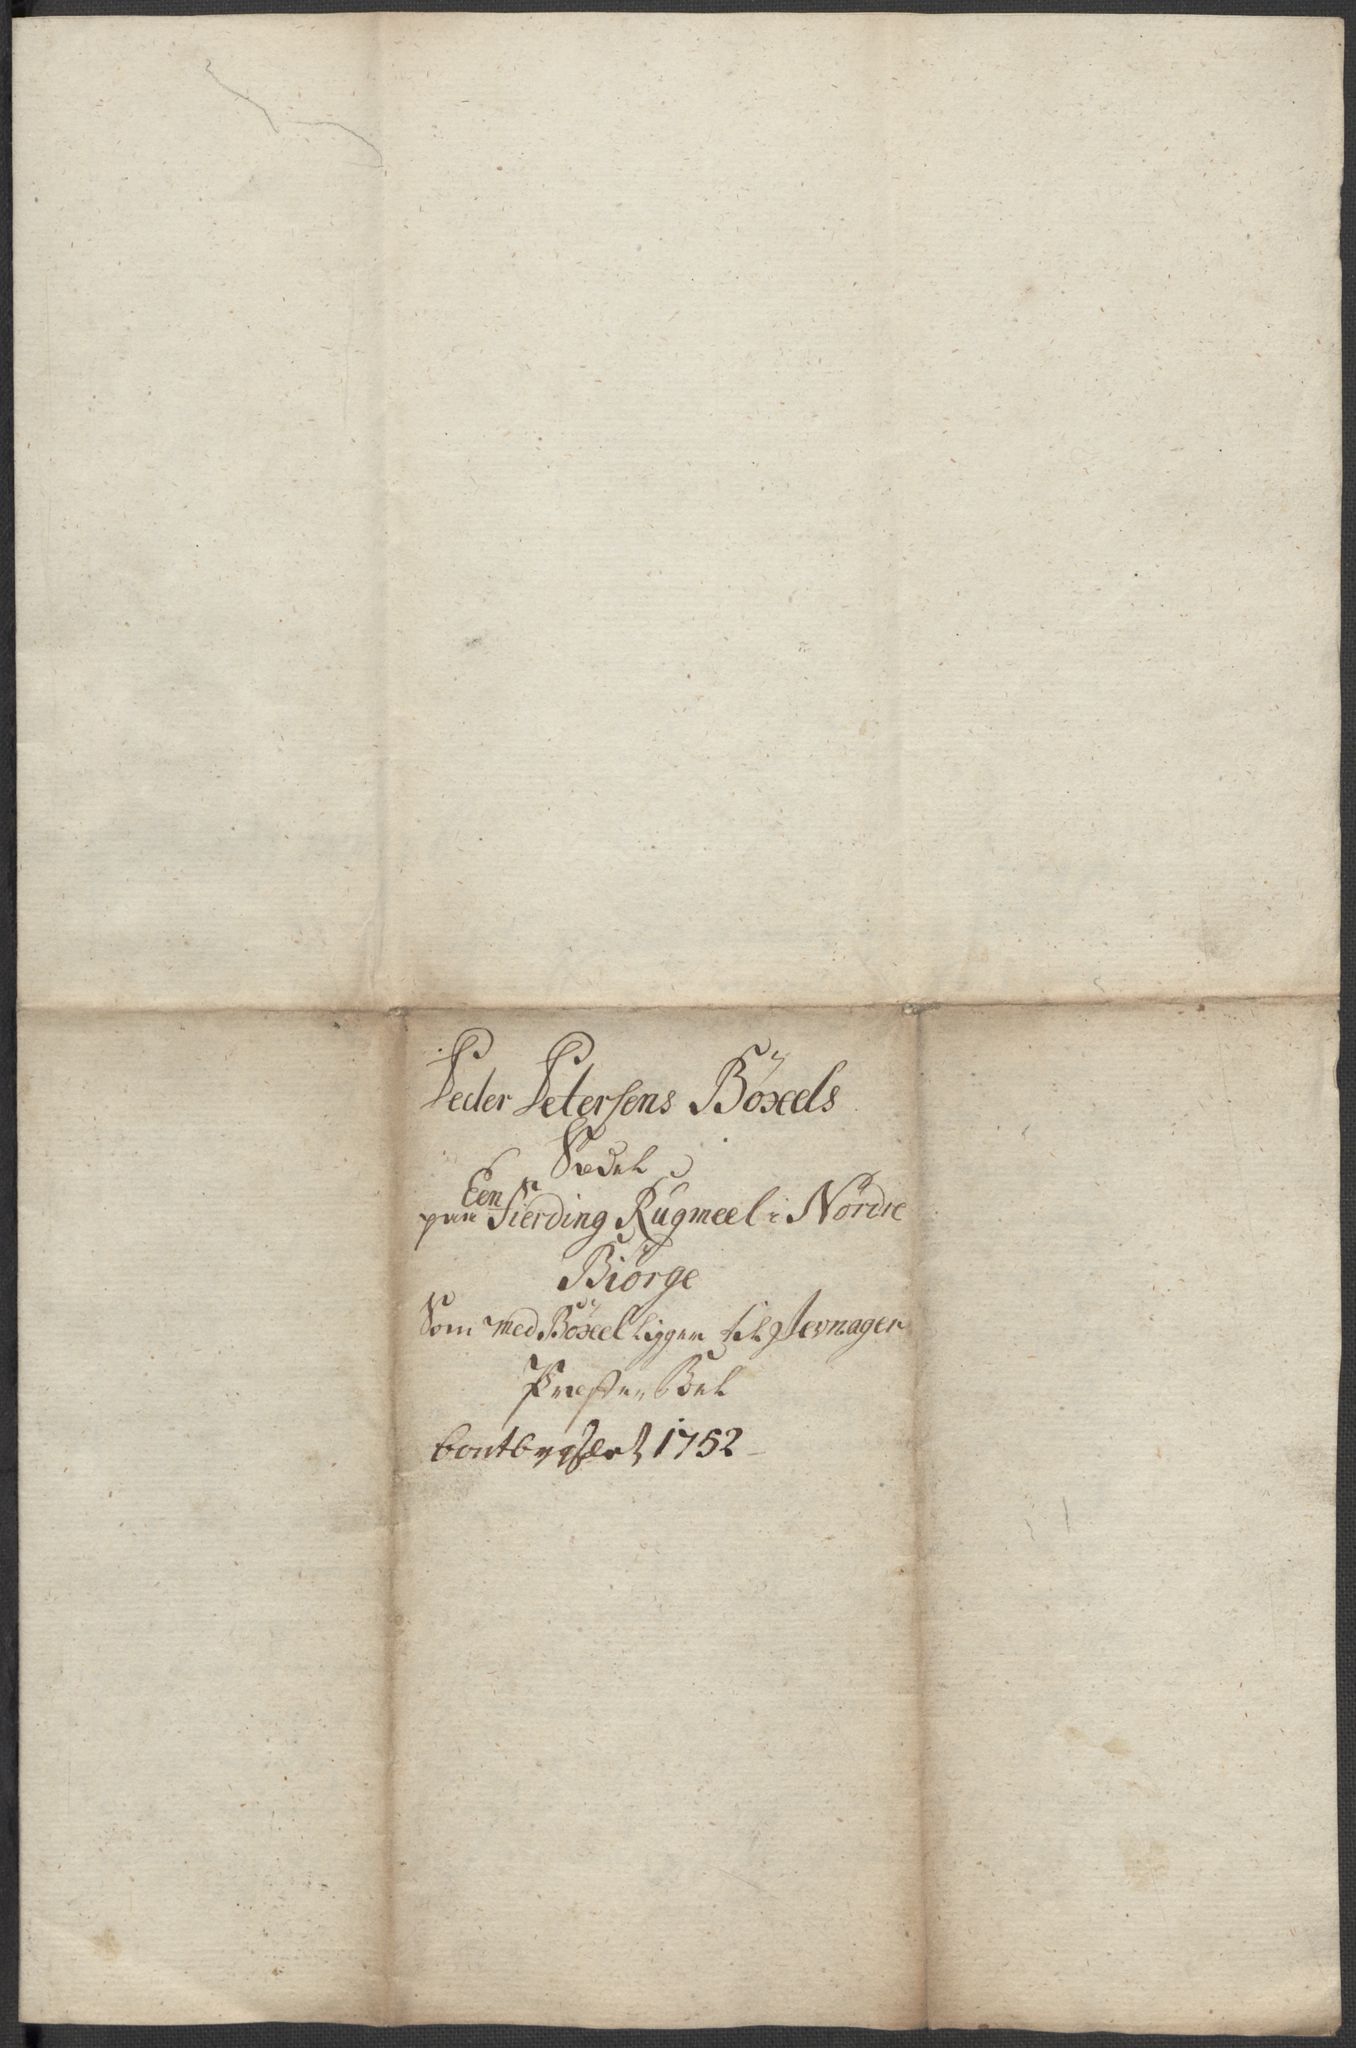 Peder Petersens Böxels
Sedel
paa Een Fierding Rugmeel i Nordre
Biörge
Som med Böxel ligger til Jevnager
Præste Boel
bortbygslet 1752